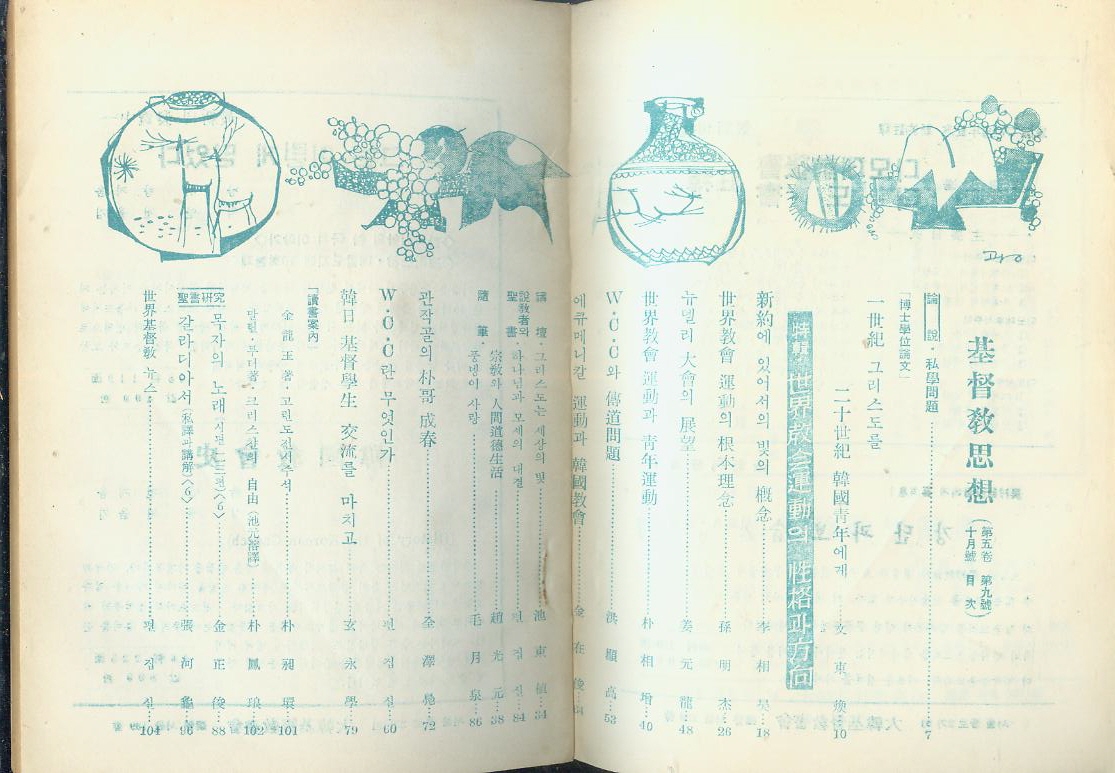 基督敎思想 (第五卷 第九號 十月號 目次)
論說・私學問題……7
「博士學位論文」
一世紀 그리스도를
二十世紀 韓國靑年에게……文東煥…10
特輯 世界敎會運動의 性格과 方向
新約에 있어서의 빛의 槪念……李相昊…18
世界敎會 運動의 根本理念……孫明杰…26
뉴델리 大會의 展望……姜元龍…48
世界敎會 運動과 靑年運動……朴相增…40
W・C・C와 傳道問題……洪顯卨…53
에큐메니칼 運動과 韓國敎會……金在俊
講壇・그리스도는 세상의 빛……池東植…34
說敎者와 聖書・하나님과 모세의 대결……편집실…84
隨筆・宗敎와 人間道德生活……趙光元…38
풍뎅이 사랑……毛月泉…86
관작골의 朴哥 成春……全澤鳧…72
W・C・C란 무엇인가……편집실…60
韓日 基督學生 交流를 마치고……玄永學…79
「讀書案內」
金龍玉 著・고린도전서주석……朴昶環…101
말틴・루터著・크리스챤의 自由(池元溶譯)……朴鳳琅…102
聖書硏究
목자의 노래 시편 二三편〈6〉……金正俊…88
갈라디아서(私譯과 講解)〈6〉……張河龜…96
世界基督敎 뉴스……편집실…104